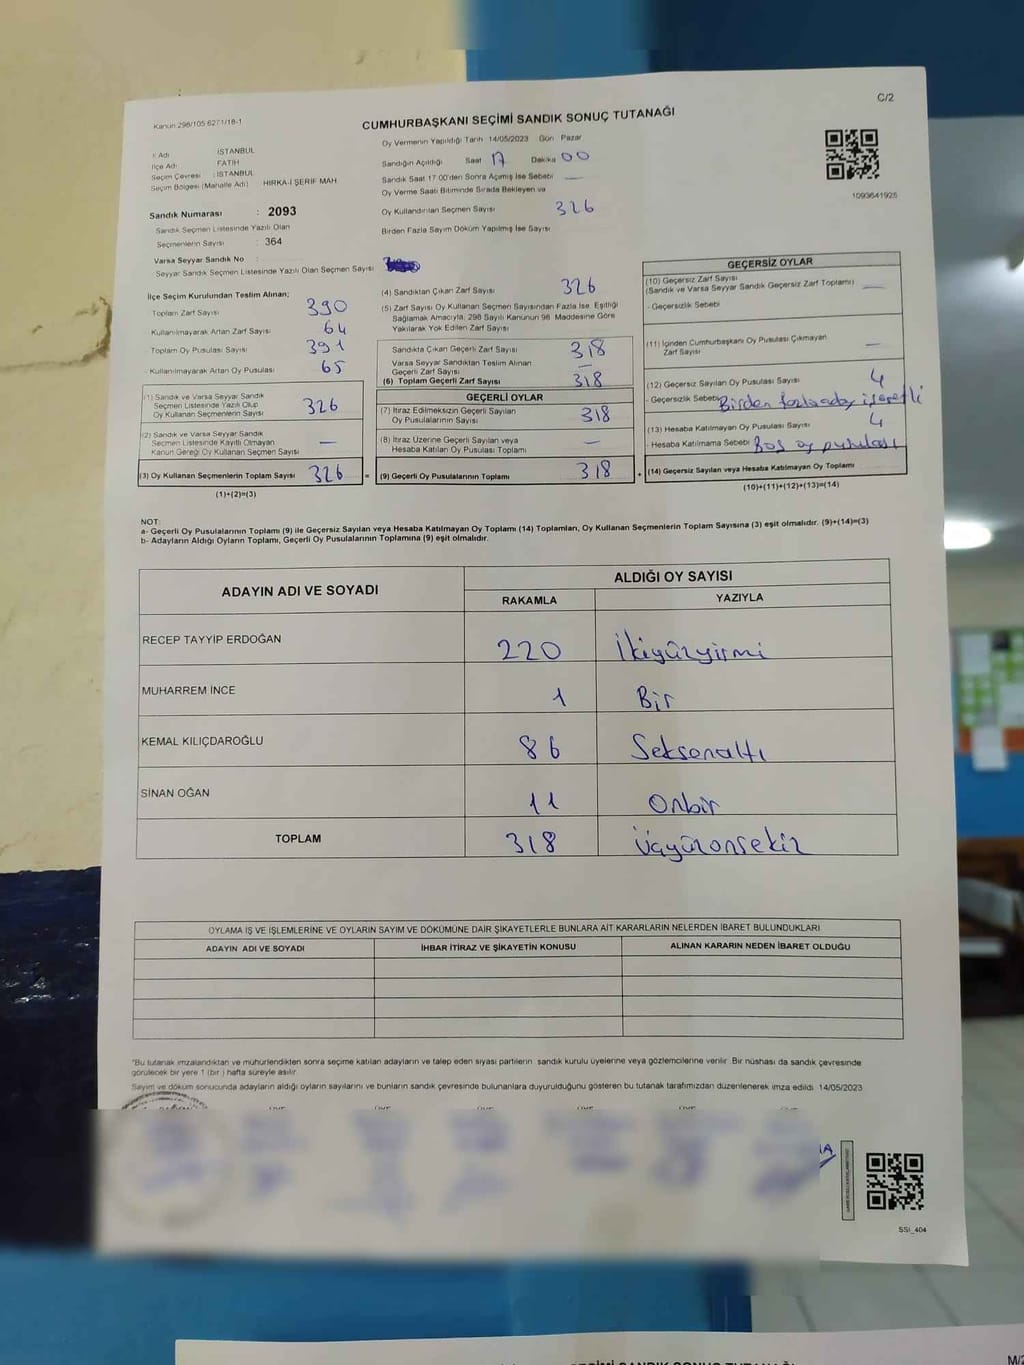 C/2
Kanun 298/105 6271/18-1
CUMHURBAŞKANI SEÇİMİ SANDIK SONUÇ TUTANAĞI
İl Adı İSTANBUL
İlçe Adı FATİH
Seçim Çevresi : İSTANBUL
Seçim Bölgesi (Mahalle Adı) HIRKA-İ ŞERİF MAH
Sandık Numarası : 2093
Sandık Seçmen Listesinde Yazılı Olan
Seçmenlerin Sayısı : 364
Varsa Seyyar Sandık No
Seyyar Sandık Seçmen Listesinde Yazılı Olan Seçmen Sayısı
Oy Vermenin Yapıldığı Tarih 14/05/2023 Gün Pazar
Sandığın Açıldığı Saat 17 Dakika 00
Sandık Saat 17.00'den Sonra Açılmış İse Sebebi —
Oy Verme Saati Bitiminde Sırada Bekleyen ve
Oy Kullandırılan Seçmen Sayısı 326
Birden Fazla Sayım Döküm Yapılmış İse Sayısı
1093641925
İlçe Seçim Kurulundan Teslim Alınan;
Toplam Zarf Sayısı 390
- Kullanılmayarak Artan Zarf Sayısı 64
Toplam Oy Pusulası Sayısı 391
- Kullanılmayarak Artan Oy Pusulası 65
(1) Sandık ve Varsa Seyyar Sandık
Seçmen Listesinde Yazılı Olup
Oy Kullanan Seçmenlerin Sayısı 326
(2) Sandık ve Varsa Seyyar Sandık
Seçmen Listesinde Kayıtlı Olmayan
Kanun Gereği Oy Kullanan Seçmen Sayısı —
(3) Oy Kullanan Seçmenlerin Toplam Sayısı 326 =
(1)+(2)=(3)
(4) Sandıktan Çıkan Zarf Sayısı 326
(5) Zarf Sayısı Oy Kullanan Seçmen Sayısından Fazla İse, Eşitliği
Sağlamak Amacıyla, 298 Sayılı Kanunun 98. Maddesine Göre
Yakılarak Yok Edilen Zarf Sayısı
Sandıkta Çıkan Geçerli Zarf Sayısı 318
Varsa Seyyar Sandıktan Teslim Alınan
Geçerli Zarf Sayısı —
(6) Toplam Geçerli Zarf Sayısı 318
GEÇERLİ OYLAR
(7) İtiraz Edilmeksizin Geçerli Sayılan
Oy Pusulalarının Sayısı 318
(8) İtiraz Üzerine Geçerli Sayılan veya
Hesaba Katılan Oy Pusulası Toplamı —
(9) Geçerli Oy Pusulalarının Toplamı 318 +
GEÇERSİZ OYLAR
(10) Geçersiz Zarf Sayısı
(Sandık ve Varsa Seyyar Sandık Geçersiz Zarf Toplamı) —
- Geçersizlik Sebebi
(11) İçinden Cumhurbaşkanı Oy Pusulası Çıkmayan
Zarf Sayısı —
(12) Geçersiz Sayılan Oy Pusulası Sayısı 4
- Geçersizlik Sebebi Birden fazla aday işaretli
(13) Hesaba Katılmayan Oy Pusulası Sayısı 4
- Hesaba Katılmama Sebebi Boş oy pusulası
(14) Geçersiz Sayılan veya Hesaba Katılmayan Oy Toplamı
(10)+(11)+(12)+(13)=(14)
NOT:
a- Geçerli Oy Pusulalarının Toplamı (9) ile Geçersiz Sayılan veya Hesaba Katılmayan Oy Toplamı (14) Toplamları, Oy Kullanan Seçmenlerin Toplam Sayısına (3) eşit olmalıdır. (9)+(14)=(3)
b- Adayların Aldığı Oyların Toplamı, Geçerli Oy Pusulalarının Toplamına (9) eşit olmalıdır.
ADAYIN ADI VE SOYADI ALDIĞI OY SAYISI
RAKAMLA YAZIYLA
RECEP TAYYİP ERDOĞAN 220 İkiyüzyirmi
MUHARREM İNCE 1 Bir
KEMAL KILIÇDAROĞLU 86 Seksenaltı
SİNAN OĞAN 11 Onbir
TOPLAM 318 Üçyüzonsekiz
OYLAMA İŞ VE İŞLEMLERİNE VE OYLARIN SAYIM VE DÖKÜMÜNE DAİR ŞİKAYETLERLE BUNLARA AİT KARARLARIN NELERDEN İBARET BULUNDUKLARI
ADAYIN ADI VE SOYADI İHBAR İTİRAZ VE ŞİKAYETİN KONUSU ALINAN KARARIN NEDEN İBARET OLDUĞU
*Bu tutanak imzalandıktan ve mühürlendikten sonra seçime katılan adayların ve talep eden siyasi partilerin sandık kurulu üyelerine veya gözlemcilerine verilir. Bir nüshası da sandık çevresinde
görülecek bir yere 1 (bir) hafta süreyle asılır.
Sayım ve döküm sonucunda adayların aldığı oyların sayılarını ve bunların sandık çevresinde bulunanlara duyurulduğunu gösteren bu tutanak tarafımızdan düzenlenerek imza edildi. 14/05/2023
SSI_404